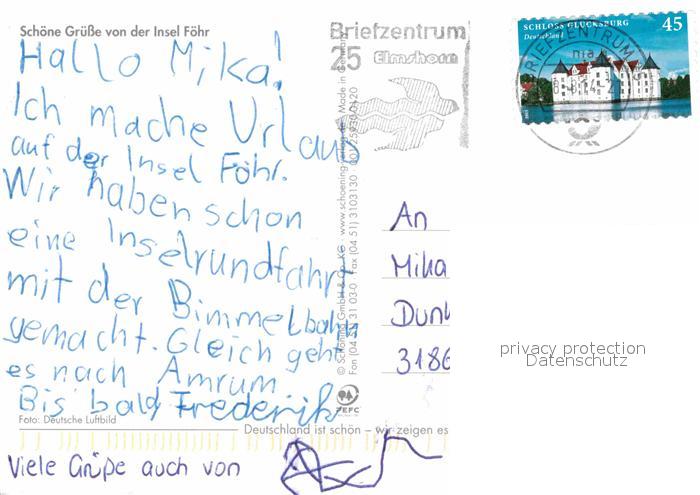 Schöne Grüße von der Insel Föhr
Hallo Mika!
Ich mache Urlaub
auf der Insel Föhr.
Wir haben schon
eine Inselrundfahrt
mit der Bimmelbahn
gemacht. Gleich geht
es nach Amrum
Bis bald Frederik
Foto: Deutsche Luftbild
Deutschland ist schön – wir zeigen es
Viele Grüße auch von
Briefzentrum
25 Elmshorn
© Schöning GmbH & Co. KG · www.schoening-verlag.de · Made in Germany
Fon (04 51) 31 03-0 · Fax (04 51) 3103130
PEFC
SCHLOSS GLÜCKSBURG 45
Deutschland
BRIEFZENTRUM
An
Mika
3186
privacy protection
Datenschutz